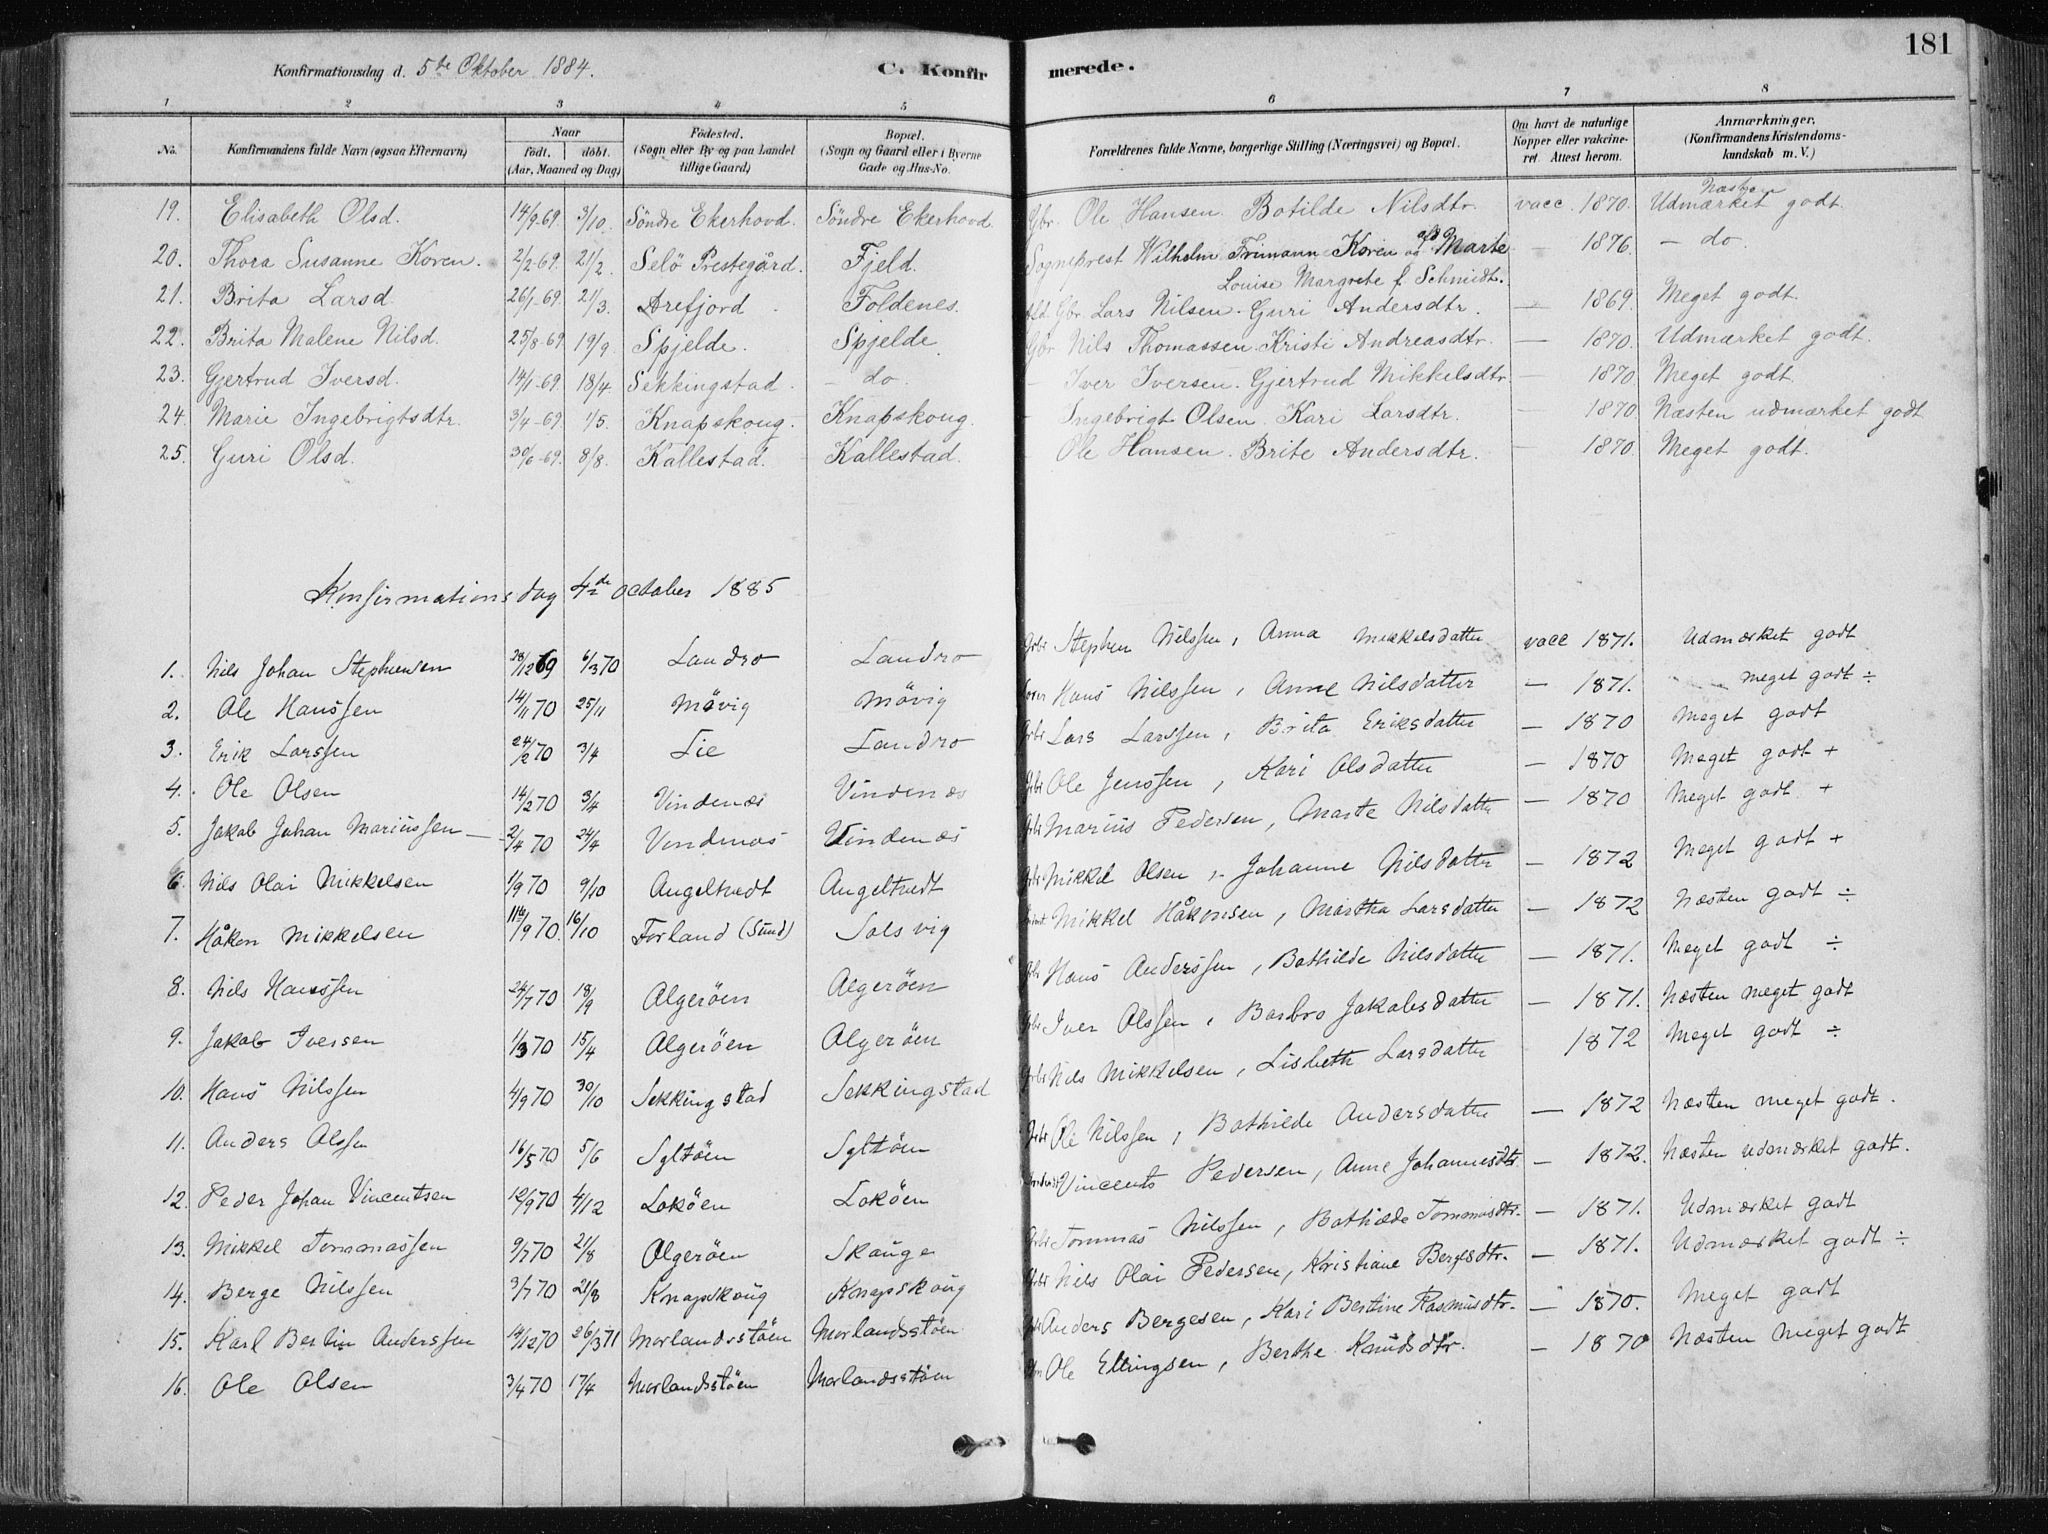 181
Konfirmationsdag d. 5te Oktober 1884. C. Konfirmerede.
1 2 3 4 5 6 7 8
No. Konfirmandens fulde Navn (ogsaa Efternavn) Naar født, døbt. (Aar, Maaned og Dag) Fødested. (Sogn eller By og paa Landet tillige Gaard) Bopæl. (Sogn og Gaard eller i Byerne Gade og Hus-No. Forældrenes fulde Navne, borgerlige Stilling (Næringsvei) og Bopæl. Om havt de naturlige Kopper eller vakcineret. Attest herom. Anmærkninger. (Konfirmandens Kristendomskundskab m. V.)
19. Elisabeth Olsd. 14/9-69. 3/10. Söndre Ekerhovd. Söndre Ekerhovd. Gbr. Ole Hansen. Botilde Nilsdtr. vacc. 1870. Næsten Udmærket godt.
20. Thora Susanne Koren. 2/2-69. 21/2. Selö Prestegård. Fjeld. Sogneprest Wilhelm Frimann Koren og Marie Louise Margrete f. Schmidt. — 1876. — do.
21. Brita Larsd. 26/1-69. 21/3. Arefjord. Foldenes. Gbr. Lars Nilsen. Guri Andersdtr. — 1869. Meget godt.
22. Brita Malene Nilsd. 25/8-69. 19/9. Spjelde. Spjelde. Gbr. Nils Thomassen. Kristi Andreasdtr. — 1870. Udmærket godt.
23. Gjertrud Iversd. 14/1-69. 18/4. Sekkingstad. — do. — Iver Iversen. Gjertrud Mikkelsdtr. — 1870. Meget godt.
24. Marie Ingebrigtsdtr. 3/4-69. 1/5. Knapskoug. Knapskoug. — Ingebrigt Olsen. Kari Larsdtr. — 1870. Næsten udmærket godt
25. Guri Olsd. 30/6-69. 8/8. Kallestad. Kallestad. Ole Hansen. Brite Andersdtr. — 1870. Meget godt.
Konfirmationsdag 4de October 1885
1. Nils Johan Stephensen 28/12 69 6/3 70 Landro Landro Grbr Stephen Nilssen, Anna Mikkelsdatter vacc 1871. Udmærket godt
2. Ole Hanssen 14/11 70 25/11 Mövig Mövig Hans Nilssen, Anne Nilsdatter — 1871. meget godt ÷
3. Erik Larssen 24/2 70 3/4 Lie Landro Grbr Lars Larssen, Brita Eriksdatter — 1870 Meget godt
4. Ole Olsen 14/2 70 3/4 Vindenæs Vindenæs Grbr Ole Jenssen, Kari Olsdatter — 1870 Meget godt +
5. Jakob Johan Mariussen — 2/4 70 24/4 Vindenæs Vindenæs Grbr Marius Pedersen, Marte Nilsdatter — 1870 Meget godt +
6. Nils Olai Mikkelsen 1/9 70 9/10 Angeltvedt Angeltvedt Grbr Mikkel Olsen, Johanne Nilsdatter — 1872 Meget godt +
7. Håkon Mikkelsen 14/9 70. 16/10 Forland (Sund) Solsvig Mikkel Håkonsen, Martha Larsdatter — 1872 Næsten godt ÷
8. Nils Hanssen 24/7 70 18/9 Algeröen Algeröen Grbr Hans Anderssen, Bothilde Nilsdatter — 1871. Meget godt ÷
9. Jakob Iversen 1/3 70 15/4 Algeröen Algeröen Grbr Iver Olssen, Barbro Jakobsdatter — 1871. Næsten meget godt
10. Hans Nilssen 4/9 70 30/10 Sekkingstad Sekkingstad Grbr Nils Mikkelsen, Lisbeth Larsdatter 1872 Meget godt ÷
11. Anders Olssen 16/5 70 5/6 Syltöen Syltöen Grbr Ole Nilssen, Bothilde Andersdatter — 1872 Næsten meget godt.
12. Peder Johan Vincentsen 12/9 70 4/12 Loköen Loköen Vincents Pedersen, Anne Johannesdtr. — 1872. Næsten udmærket godt.
13. Mikkel Tommassen 9/7 70 21/8 Algeröen Skauge Grbr Tommas Nilssen, Bothilde Tommasdtr. — 1871. Udmærket godt
14. Berge Nilssen 3/7 70 21/8 Knapskoug Knapskoug Grbr Nils Olai Pedersen, Kristiane Bergesdtr. — 1871. Udmærket godt ÷
15. Karl Bertin Anderssen 14/12 70 26/3 71 Morlandsstöen Morlandsstöen Anders Bergesen, Kari Bertine Rasmusdtr. — 1870. Meget godt
16. Ole Olsen 3/4 70 17/4 Morlandsstöen Morlandsstöen Ole Ellingsen, Berthe Knudsdtr. — 1870 Næsten meget godt